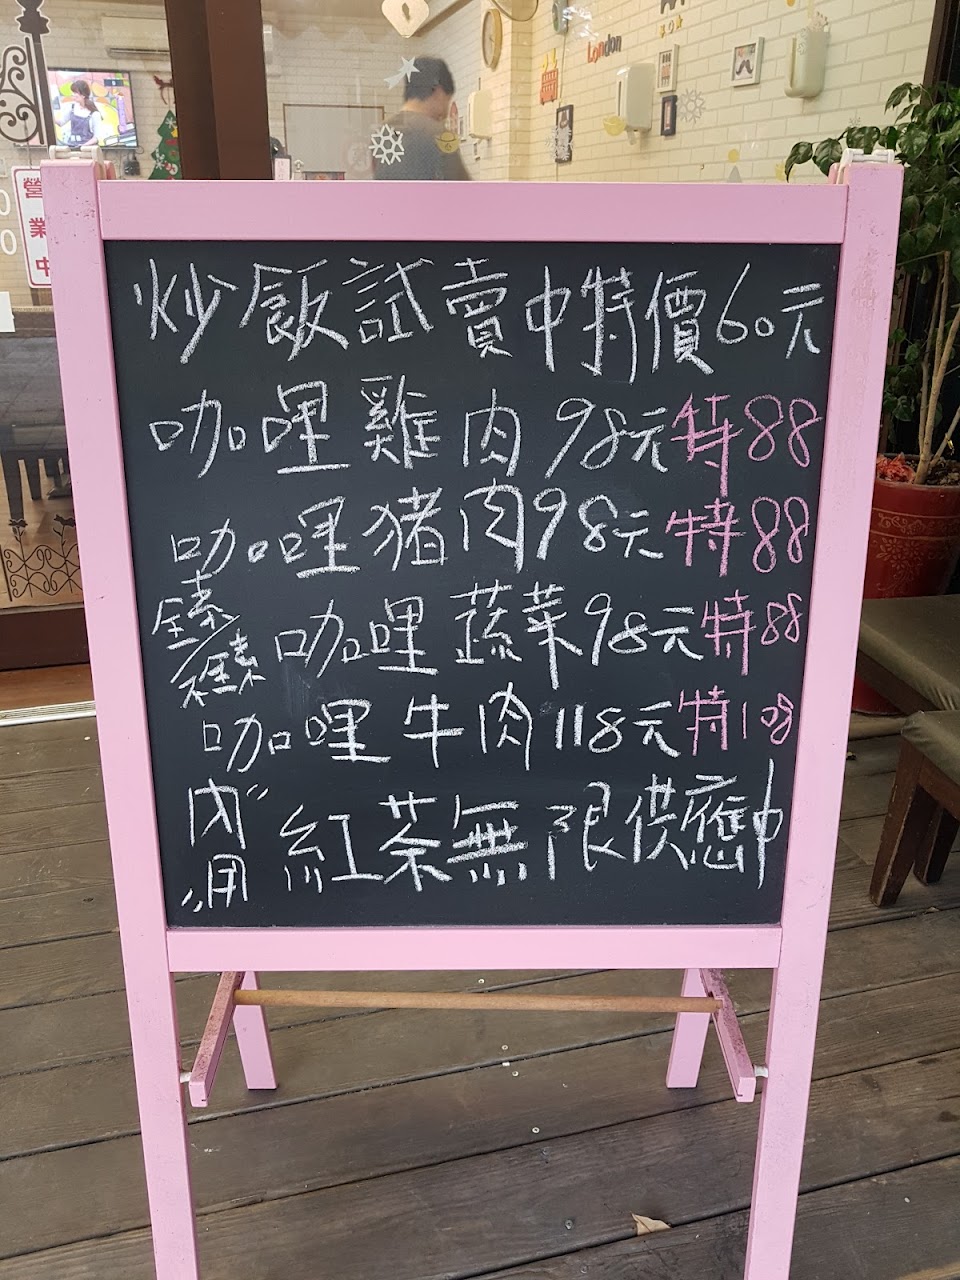 London
營業中
炒飯試賣中特價60元
咖哩雞肉 98元 特88
咖哩豬肉 98元 特88
全素 裡素 咖哩蔬菜 98元 特88
咖哩牛肉 118元 特108
內用 紅茶無限供應中